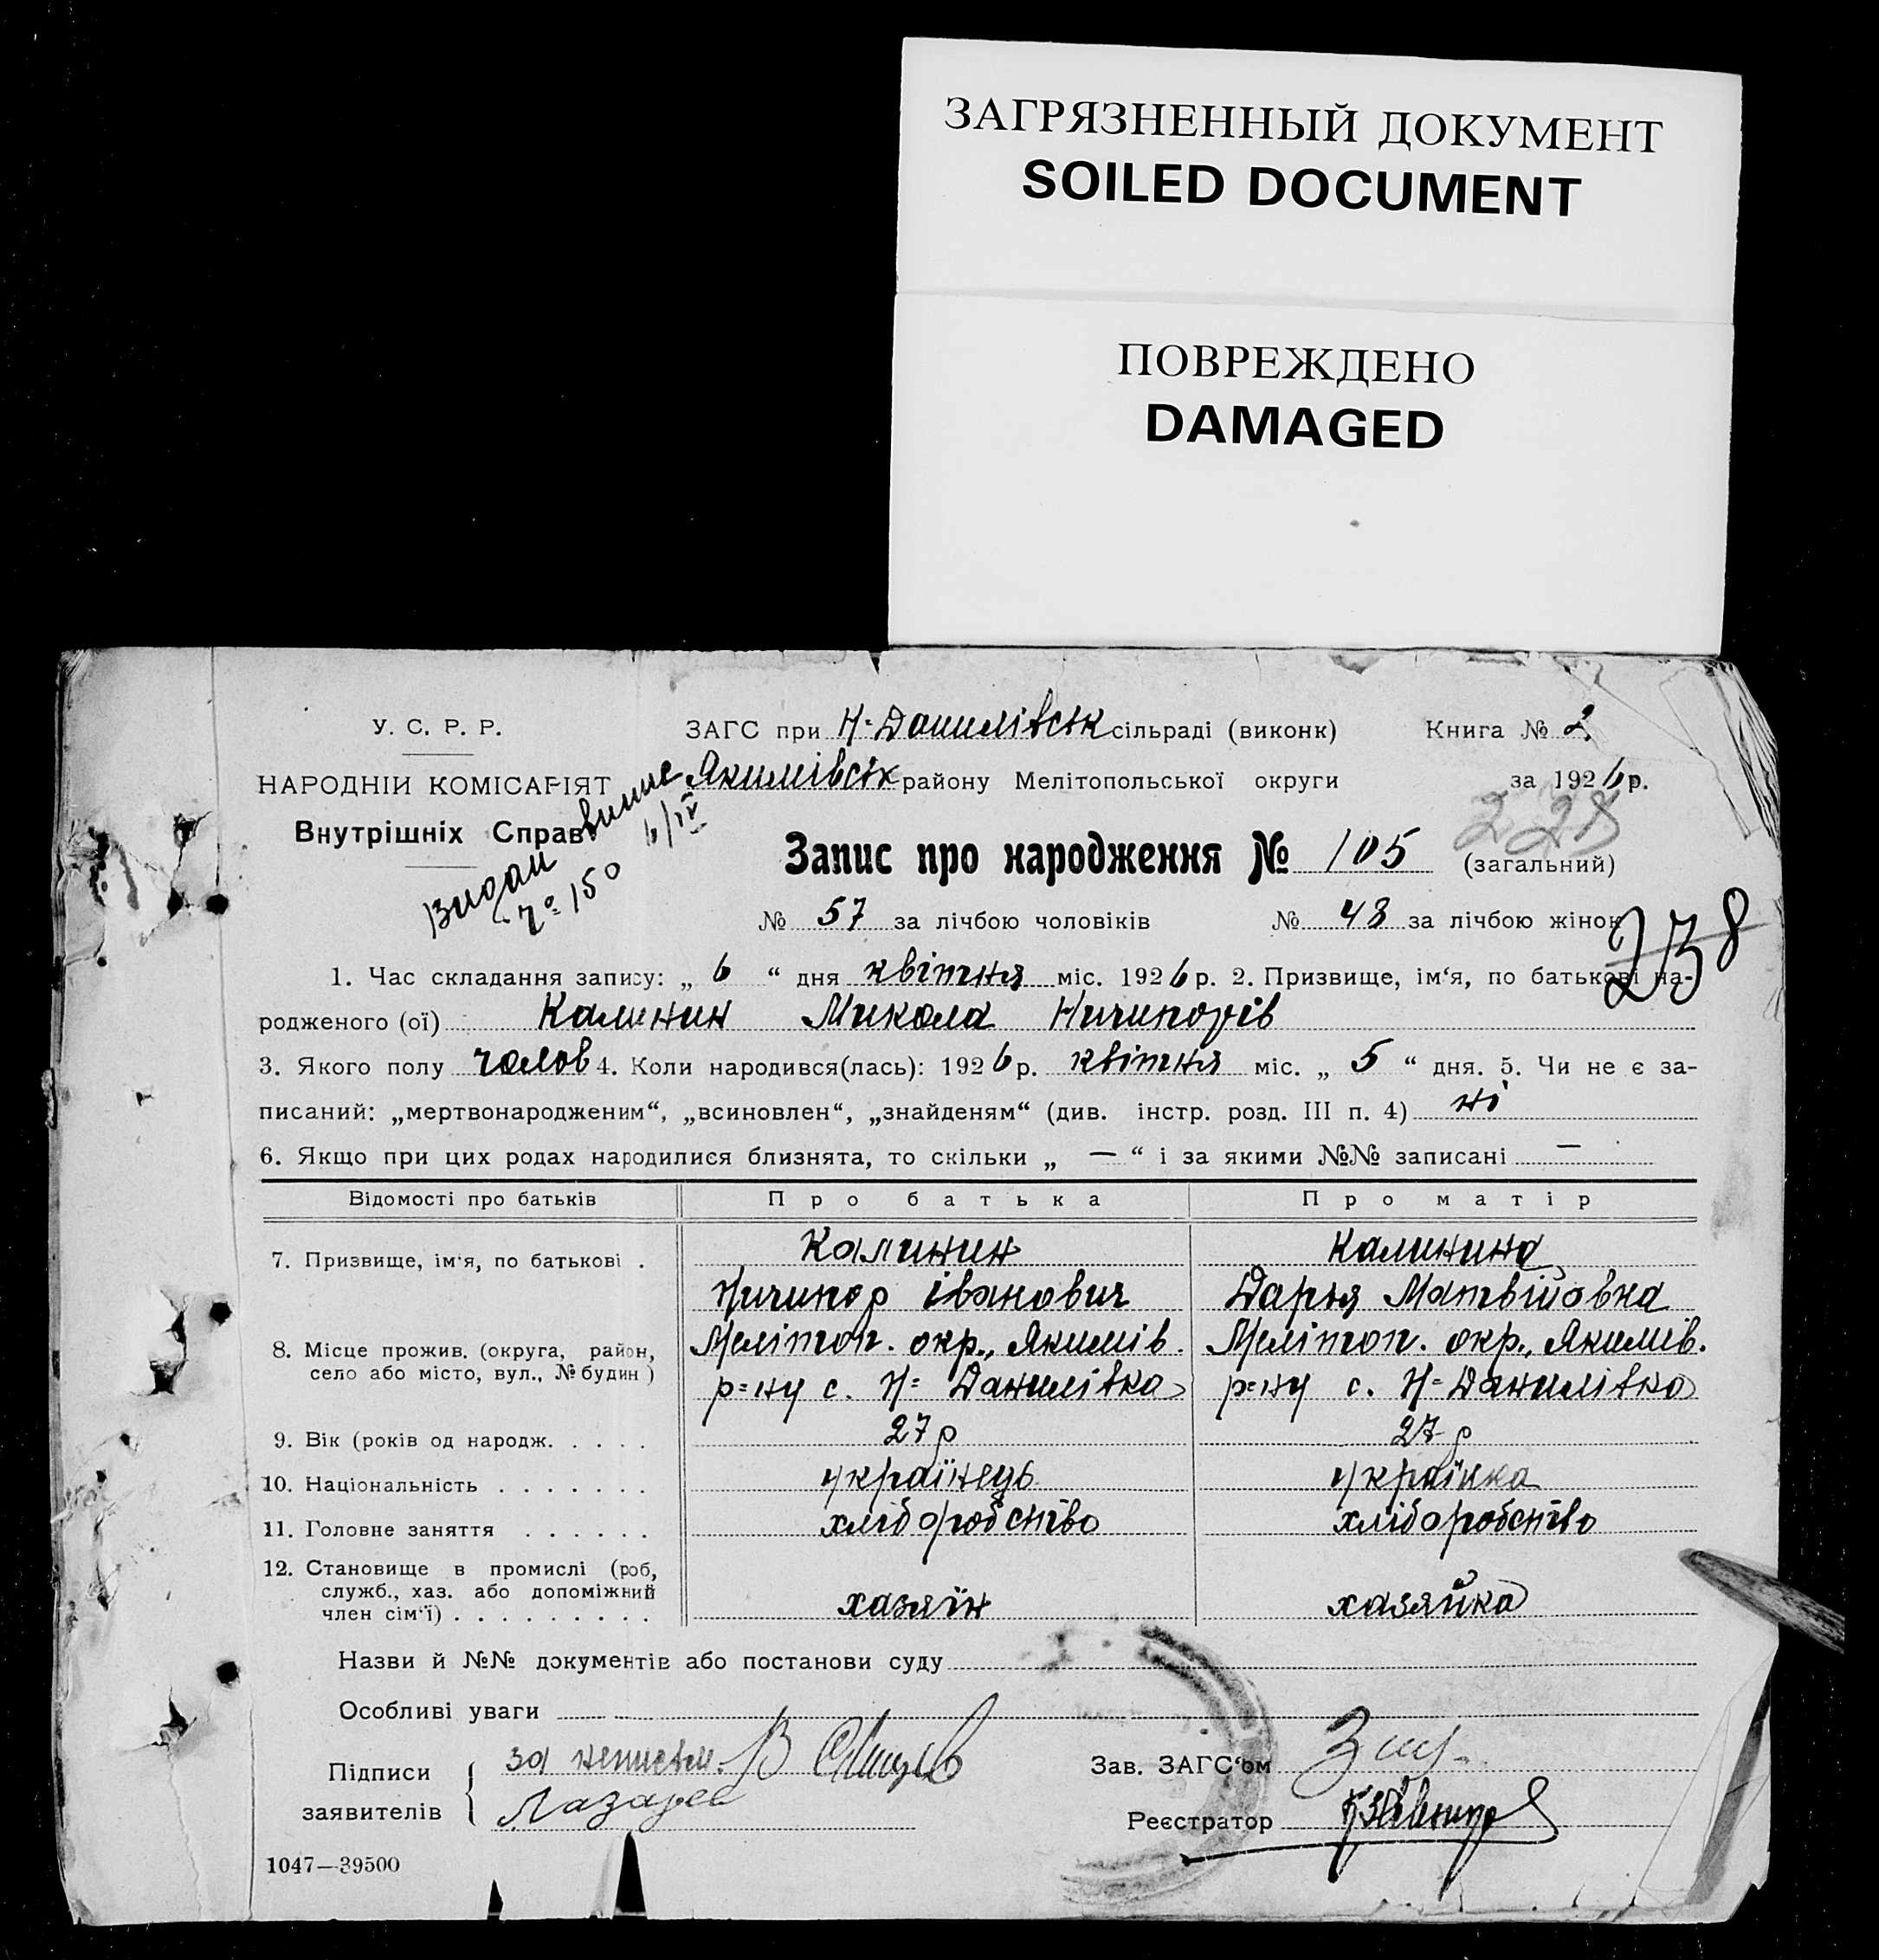 ЗАГРЯЗНЕННЫЙ ДОКУМЕНТ
SOILED DOCUMENT
ПОВРЕЖДЕНО
DAMAGED
У. С. Р. Р.
ЗАГС при Н-Данилівськ сільраді (виконк)
Книга № 2
НАРОДНІЙ КОМІСАРІЯТ
Якимівськ району Мелітопольської округи
за 1926 р.
Внутрішніх Справ
Видан випис
№ 150 6/IV
228
Запис про народження № 105 (загальний)
№ 57 за лічбою чоловіків № 48 за лічбою жінок
238
1. Час складання запису: „ 6 “ дня квітня міс. 1926 р. 2. Призвище, ім‘я, по батькові на-
родженого (ої) Калинин Микола Ничипорів
3. Якого полу чолов 4. Коли народився(лась): 1926 р. квітня міс. „ 5 “ дня. 5. Чи не є за-
писаний: „мертвонародженим“, „всиновлен“, „знайденям“ (див. інстр. розд. III п. 4) ні
6. Якщо при цих родах народилися близнята, то скільки „ — “ і за якими №№ записані —
Відомості про батьків Про батька Про матір
7. Призвище, ім‘я, по батькові . Калинин Калинина
Ничипор Іванович Дарья Матвійовна
8. Місце прожив. (округа, район, Меліток. окр., Якимів. Меліток. окр., Якимів.
село або місто, вул., № будин ) р=ну с. Н=Данилівка р=ну с. Н=Данилівка
9. Вік (років од народж. . . . . 27 р 27 р
10. Національність . . . . . . . українець українка
11. Головне заняття . . . . . . хліборобство хліборобство
12. Становище в промислі (роб,
служб., хаз. або допоміжний
член сім‘ї) . . . . . . . . . хазяїн хазяйка
Назви й №№ документів або постанови суду
Особливі уваги
Підписи за неписьм. В
заявителів Лазарев
Зав. ЗАГС‘ом
Реєстратор
1047—39500